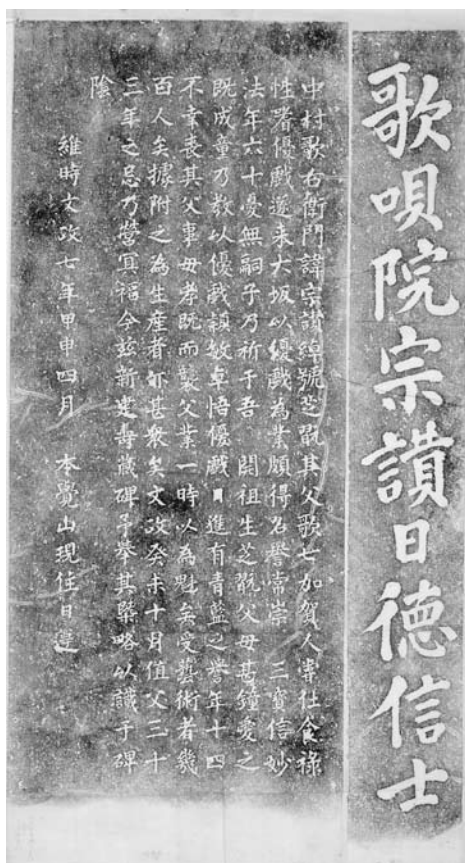 歌唄院宗讃日徳信士
中村歌右衛門諱宗讃綽號芝翫其父歌七加賀人嘗仕食祿
性嗜優戲遂来大坂以優戲為業頗得名譽常崇 三寳信妙
法年六十憂無嗣子乃祈于吾 開祖生芝翫父母甚鐘愛之
既成童乃教以優戲穎敏卓悟優戲日進有青藍之譽年十四
不幸喪其父事母孝既而襲父業一時以為魁矣受藝術者幾
百人矣據附之為生産者亦甚衆矣文政癸未十月值父三十
三年之忌乃營冥福今兹新建壽蔵碑予舉其槩略以識于碑
陰
維時文政七年甲申四月 本覺山現住日